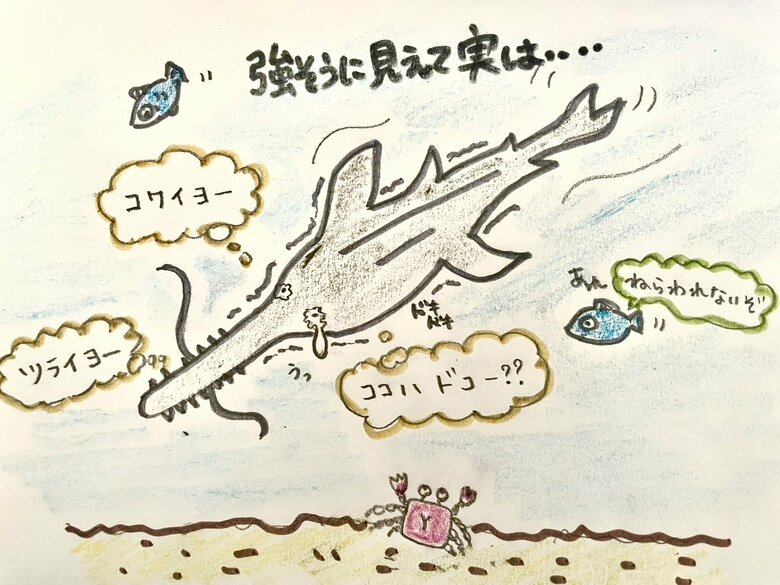 強そうに見えて実は‥‥
コワイヨー
ツライヨー
あれ
ねらわれないぞ
ドキ
ドキ
うっ
ココハドコー??